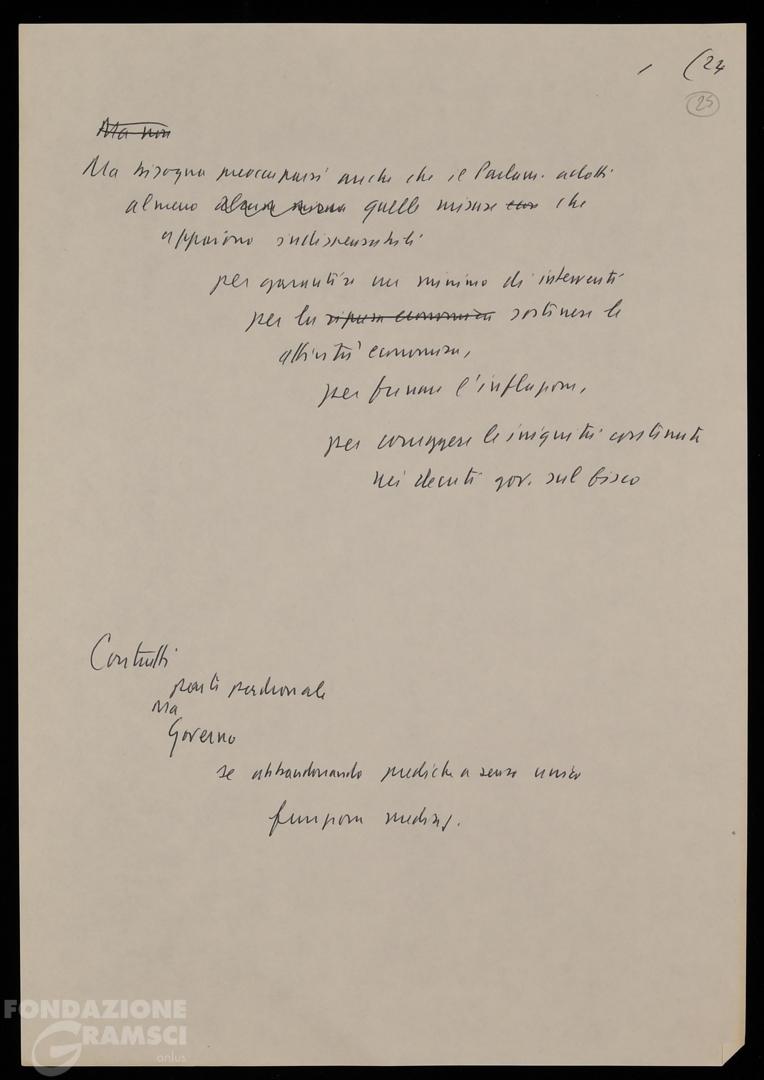 / (24
25
Ma non
Ma bisogna preoccuparsi anche che il Parlam. adotti
almeno alcune misure quelle misure che
appaiono indispensabili
per garantire un minimo di interventi
per la ripresa economica sostenere le
attività economiche,
per frenare l'inflazione,
per correggere le iniquità contenute
nei decreti gov. sul fisco
Contratti
parte padronale
Ma
Governo
se abbandonando prediche a senso unico
funzione mediaz.
FONDAZIONE
GRAMSCI
onlus